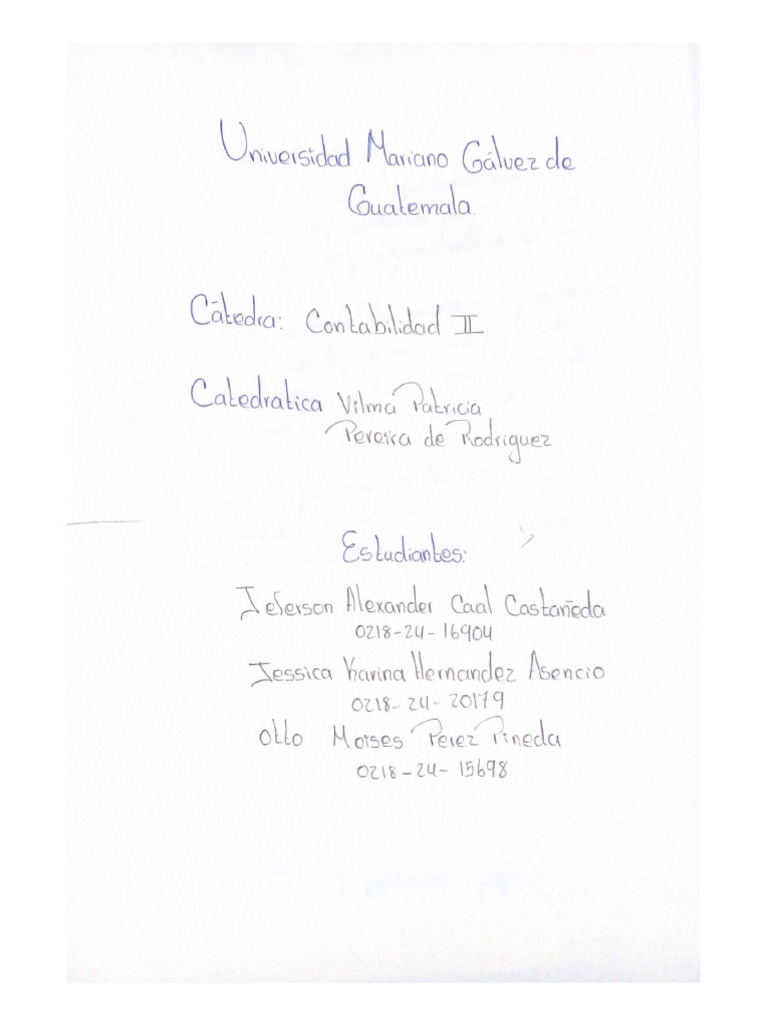 Universidad Mariano Gálvez de
Guatemala.
Cátedra: Contabilidad II
Catedratica Vilma Patricia
Pereira de Rodriguez
Estudiantes:
Jeferson Alexander Caal Castañeda
0218-24-16904
Jessica Karina Hernandez Asencio
0218-24-20179
Otto Moises Perez Pineda
0218-24-15698